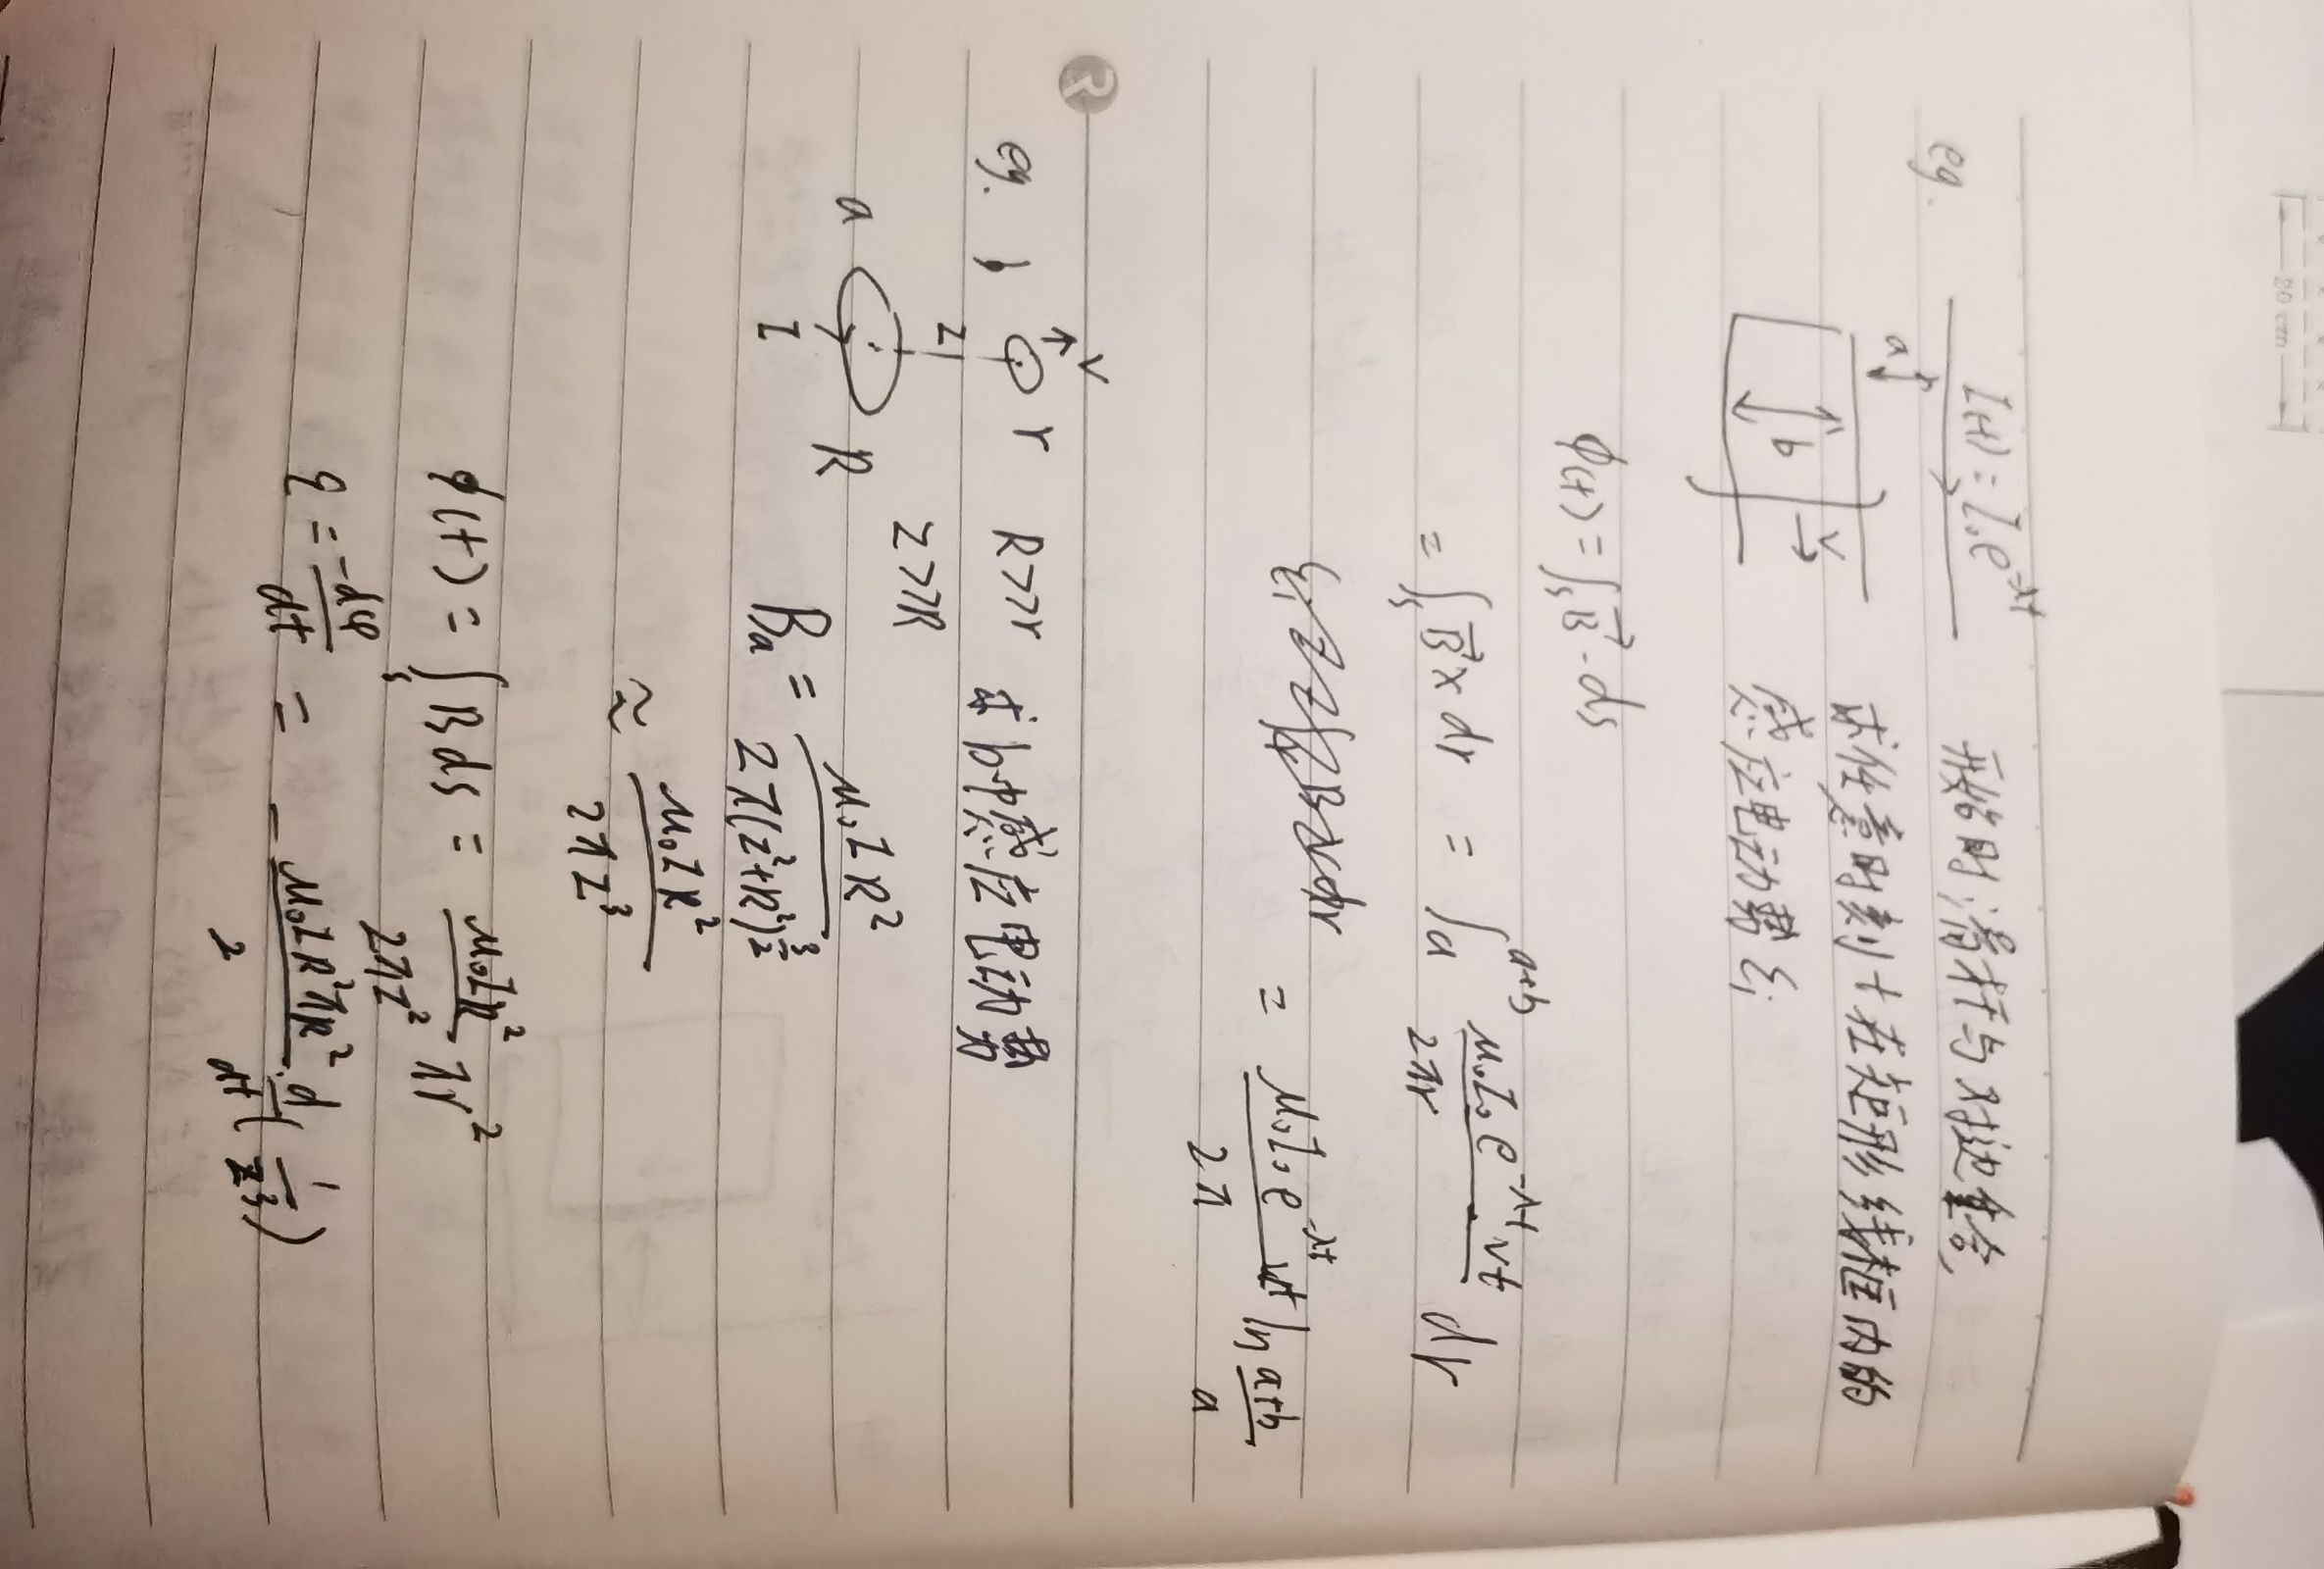 20 cm
eg. I(t) = I₀e^{-λt} 开始时滑杆与对边重合,
a
求任意时刻t在矩形线框内的
b v
感应电动势 ε_i
ϕ(t) = ∫_S \vec{B} · ds
= ∫_S \vec{B} x dr = ∫_a^{a+b} \frac{μ₀I₀e^{-λt}vt}{2πr} dr
= \frac{μ₀I₀e^{-λt}vt}{2π} ln \frac{a+b}{a}
v
eg. b r R>>r 求b中感应电动势
z z>>R
a R
I
B_a = \frac{μ₀IR²}{2π(z²+R²)^{\frac{3}{2}}}
≈ \frac{μ₀IR²}{2πz³}
ϕ(t) = ∫_S B ds = \frac{μ₀IR²}{2πz²} πr²
ε = \frac{-dφ}{dt} = - \frac{μ₀IR²πR²}{2} · \frac{d}{dt}(\frac{1}{z³})